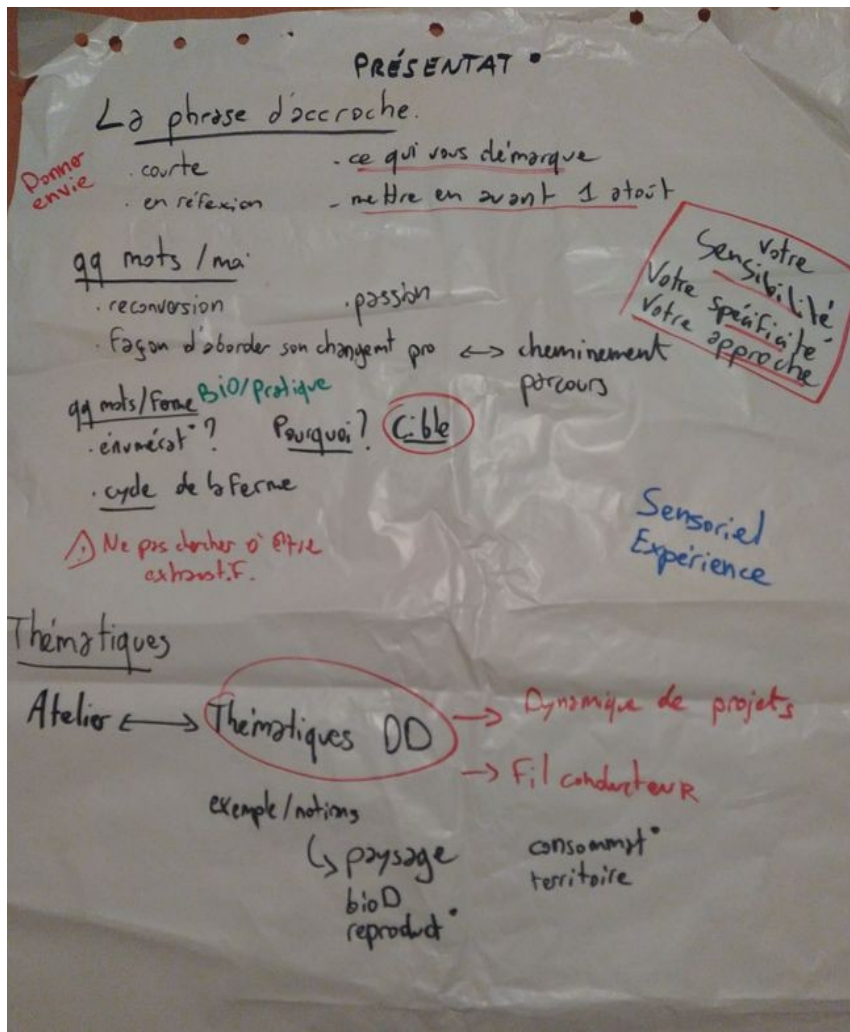 PRÉSENTAT°
La phrase d'accroche.
Donner
envie
. courte
. en réfexion
- ce qui vous démarque
- mettre en avant 1 atoût
Votre
Sensibilité
Votre spécificité
Votre approche
qq mots / moi
. reconversion
. passion
. Façon d'aborder son changemt pro <-> cheminement
parcours
qq mots/Ferme BiO/Pratique
. énumérat° ? Pourquoi ? Cible
. cycle de la Ferme
⚠ Ne pas chercher à être
exhaustif.
Sensoriel
Expérience
Thématiques
Atelier <-> Thématiques DD
-> Dynamique de projets
-> Fil conducteur
exemple/notions
↳ paysage
bioD
reproduct°
consommat°
territoire